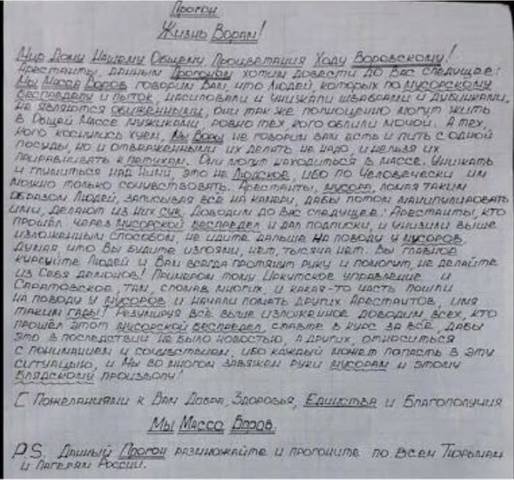 Прогон
Жизнь Ворам!
Мир Дому Нашему Общему Процветания Ходу Воровскому!
Арестанты, данным Прогоном хотим довести до Вас следущее:
Мы Масса Воров говорим Вам, что Людей, которых по мусорскому
беспределу и пыток, насиловали и унижали швабрами и дубинками,
не являются обиженными, они так же полноценно могут жить
в Общей Массе мужиками, ровно тех кого облили мочой. А тех,
кого коснулись хуем, Мы Воры не говорим Вам есть и пить с одной
посуды, но и отвержеными их делать не надо, и нельзя их
приравнивать к петухам. Они могут находиться в массе. Унижать
и глумиться над Ними, это не Людское, ибо по Человечески им
можно только сочувствовать. Арестанты, мусора, ломая таким
образом Людей, записывая всё на камеры, дабы потом манипулировать
ими, делают из них сук. Доводим до Вас следущее: Арестанты, кто
прошёл через мусорской беспредел и дал подписки, и унизили выше
изложенным способом, не идите дальше на поводу у мусоров,
думая, что Вы будите изгоями, нет, тысяча нет. Вы главное
курсуйте Людей и Вам всегда протянут руку и помогут, не делайте
из себя демонов! Примером тому Иркутское управление и
Саратовское, там, сломав многих, и какая-то часть пошли
на поводу у мусоров и начали ломать других Арестантов, имя
таким гады! Резумируя всё выше изложенное доводим всех, кто
прошёл этот мусорской беспредел, ставте в курс за всё, дабы
это в последствии не было новостью, а других, относиться
с пониманием и сочувствием, ибо каждый может попасть в эту
ситуацию, и Мы во многом завяжем руки мусорам и этому
блядскому произволу!
С Пожеланиями к Вам Добра, Здоровья, Единства и Благополучия
Мы Масса Воров.
P.S. Данный Прогон размножайте и прогоните по всем Тюрьмам
и Лагерям России.